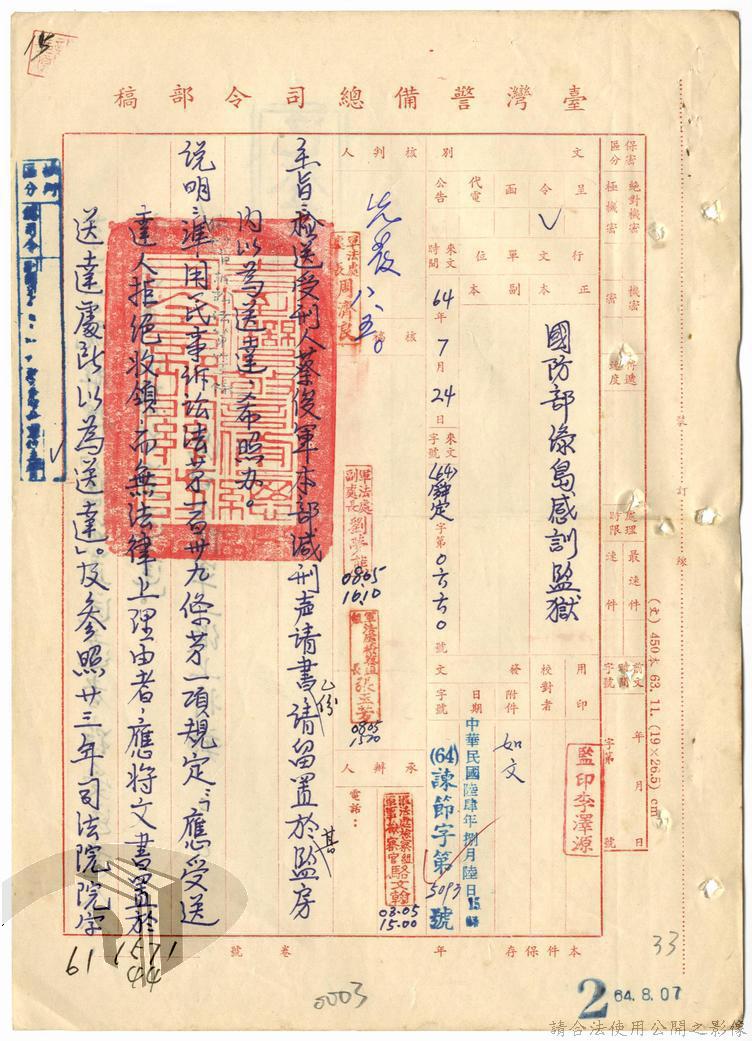 臺灣警備總司令部稿
保密區分
絕對機密
極機密
機密
密
傳遞速度
處理時限
最速件
速件
前文時間字號
年 月 日
字第 號
文別
呈
令 ✓
函
代電
公告
行文單位
正本
副本
國防部綠島感訓監獄
來文時間
64年7月24日
來文字號
(64)舜定字第0六六0號
用印
監印李澤源
校對者
發文
附件
如文
日期
中華民國陸肆年捌月陸日15時
字號
(64)諫節字第5093號
核判人
先發 八、五。
核稿
軍法處處長周濟良
軍法處副處長劉夢龍
0805
1610
軍法處檢察組組長張玉芳
0805
1500
承辦人
電話:
軍法處檢察組軍事檢察官駱文翰
08.05
15.00
主旨:檢送受刑人蔡俊軍本部減刑声请書乙份,请留置於其監房
內以為送達,希照办。
說明:準用民事訴訟法第一百卅九條第一項規定:「應受送
達人拒絕收領而無法律上理由者,應將文書置於
送達處所,以為送達」。及參照廿三年司法院院字
本件保存 年
卷 號
裝訂線
(文) 450本 63.11. (19×26.5) cm
15
61
1571
44
0003
33
2
64.8.07
請合法使用公開之影像